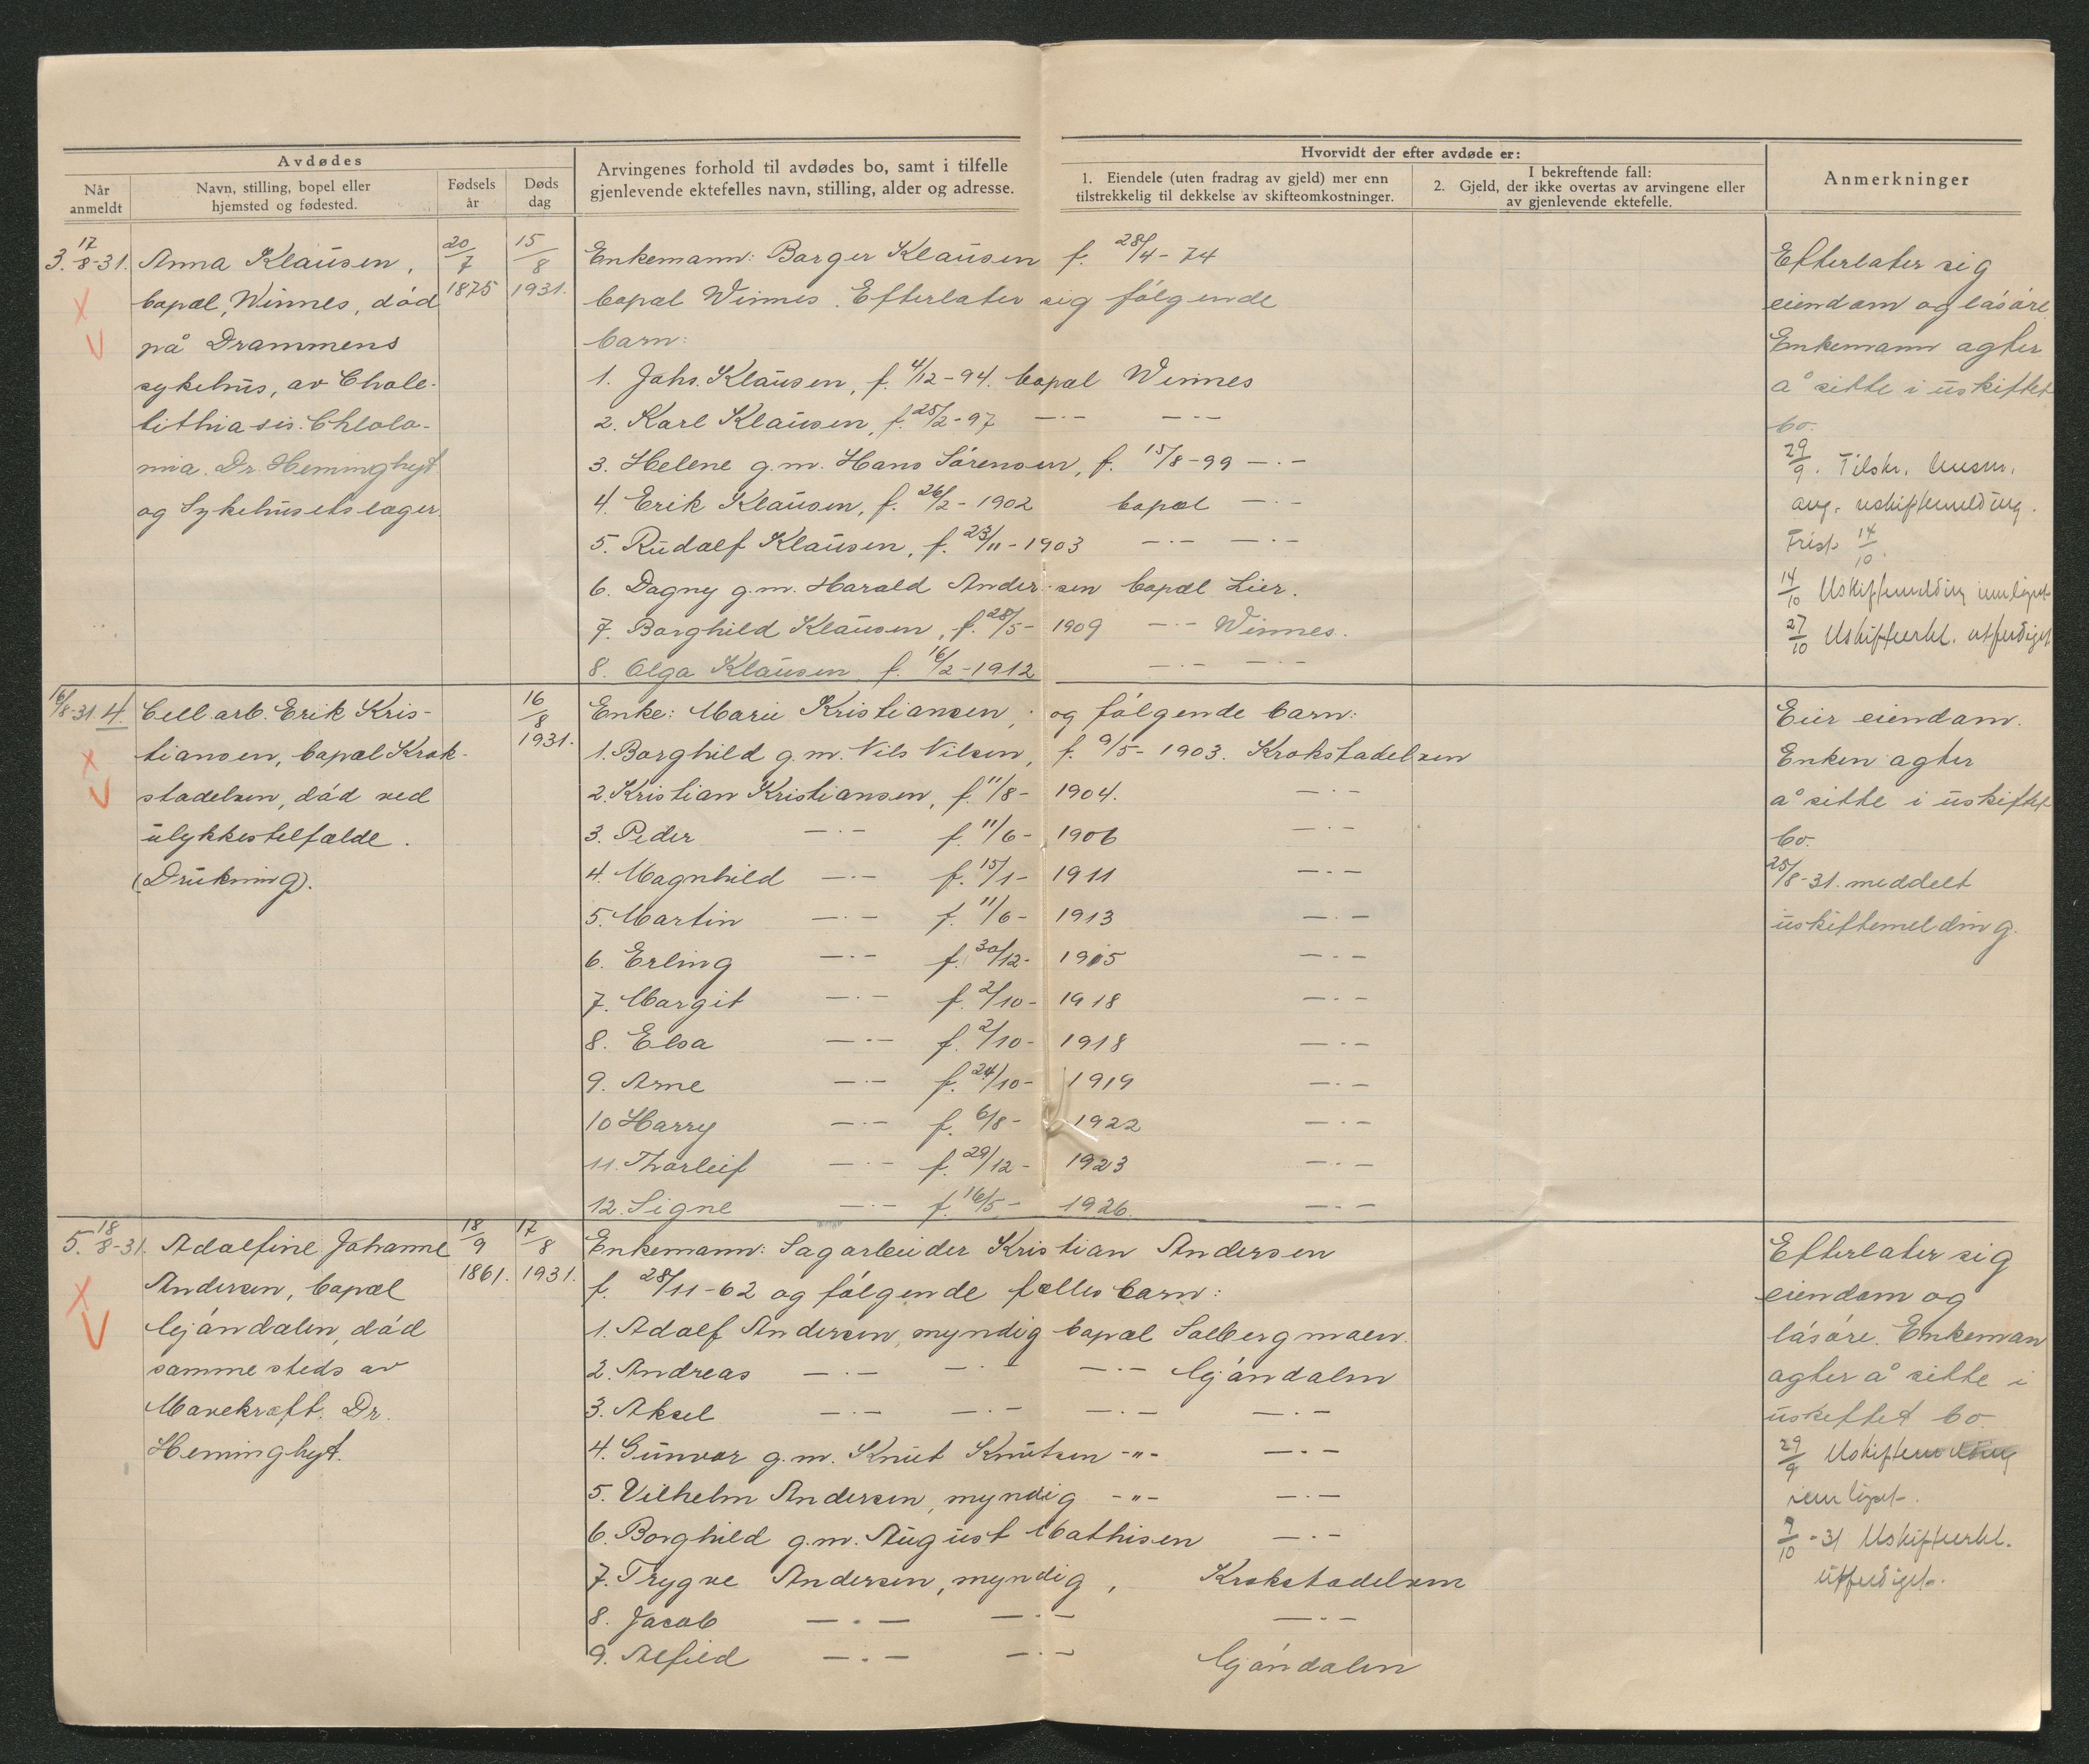 Avdødes
Når anmeldt
Navn, stilling, bopel eller hjemsted og fødested.
Fødsels år
Døds dag
Arvingenes forhold til avdødes bo, samt i tilfelle
gjenlevende ektefelles navn, stilling, alder og adresse.
Hvorvidt der efter avdøde er:
1. Eiendele (uten fradrag av gjeld) mer enn
tilstrekkelig til dekkelse av skifteomkostninger.
I bekreftende fall:
2. Gjeld, der ikke overtas av arvingene eller
av gjenlevende ektefelle.
Anmerkninger
3. 17/8-31.
Anna Klausen,
bopæl, Winnes, död
på Drammens
sykehus, av Chole-
lithiasis. Chlolo-
mia. Dr. Heminghyt
og Sykehusets læger.
20/7
1875
15/8
1931.
Enkemann: Borger Klausen f. 28/4-74
bopæl Winnes. Efterlater sig fölgende
barn:
1. Johs. Klausen, f. 4/12-94. bopæl Winnes
2. Karl Klausen, f. 25/2-97 —·— —·—
3. Helene g.m. Hans Sörensen, f. 15/8-99 —·—
4. Erik Klausen, f. 26/2-1902 bopæl —·—
5. Rudolf Klausen, f. 23/11-1903 —·— —·—
6. Dagny g.m. Harald Andersen bopæl Lier.
7. Borghild Klausen, f. 28/5-1909 —·— Winnes.
8. Olga Klausen f. 16/2-1912 —·— —·—
Efterlater sig
eiendom og lösöre
Enkemann agter
å sitte i uskiftet
bo.
29/9. Tilskr. lensm.
ang. uskiftemelding.
Frist 14/10.
14/10 Uskiftemelding innlöpet
27/10 Uskifteerkl. utferdiget
16/8-31. 4.
Cell.arb. Erik Kris-
tiansen, bopæl Krok-
stadelven, död ved
ulykkestilfælde.
(Drukning).
16/8
1931.
Enke: Marie Kristiansen, og fölgende barn:
1. Borghild g.m. Nils Nilsen, f. 9/5-1903. Krokstadelven
2. Kristian Kristiansen, f. 11/8-1904. —·—
3. Peder —·— f. 11/6-1906 —·—
4. Magnhild —·— f. 15/1-1911 —·—
5. Martin —·— f. 11/6-1913 —·—
6. Erling —·— f. 30/12-1915 —·—
7. Margit —·— f. 2/10-1918 —·—
8. Elsa —·— f. 2/10-1918 —·—
9. Arne —·— f. 24/10-1919 —·—
10 Harry —·— f. 6/8-1922 —·—
11. Thorleif —·— f. 29/12-1923 —·—
12. Signe —·— f. 16/5-1926. —·—
Eier eiendom.
Enken agter
å sitte i uskiftet
bo.
25/8-31. meddelt
uskiftemelding.
5. 18/8-31.
Adolfine Johanne
Andersen, bopæl
Gjöndalen, död
sammesteds av
Mavekræft. Dr.
Heminghyt.
18/9
1861.
17/8
1931.
Enkemann: Sagarbeider Kristian Andersen
f. 28/11-62 og fölgende fælles barn:
1. Adolf Andersen, myndig bopæl Solbergmoen.
2. Andreas —·— —·— —·— Gjöndalen
3. Aksel —·— —·— —·— —·—
4. Gunvor g.m. Knut Knutsen -"- —·—
5. Vilhelm Andersen, myndig -"- —·—
6. Borghild g.m. August Mathisen —·—
7. Trygve Andersen, myndig, Krokstadelven
8. Jacob —·— —·— —·—
9. Alfild —·— —·— Gjöndalen
Efterlater sig
eiendom og
lösöre. Enkeman
agter å sitte i
uskiftet bo
29/9 Uskiftemelding
innlöpet.
9/10-31 Uskifteerkl.
utferdiget.